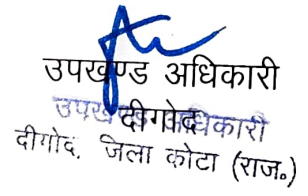 उपखण्ड अधिकारी
दीगोद
उपखण्ड अधिकारी
दीगोद, जिला कोटा (राज०)